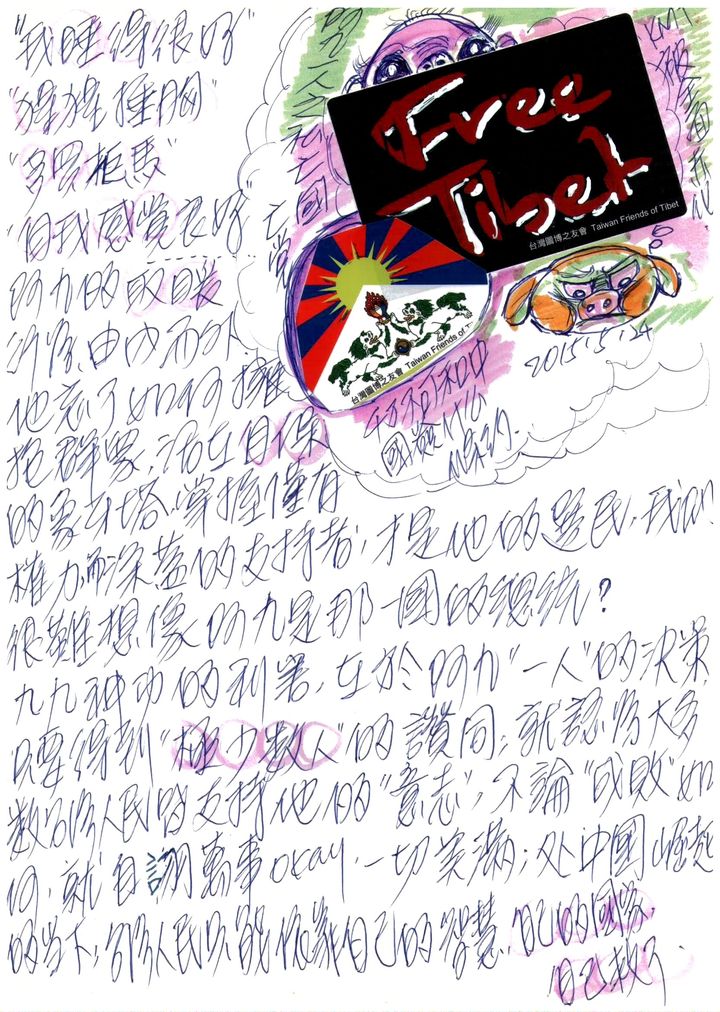 "我睡得很好"
"猩猩捶胸"
"多買拒馬"
"但我感覺良好"
阿九的取暖
所為,由內而外,
他忘了如何擁
抱群眾,活在自優
的象牙塔,掌握僅有
權力,而深藍的支持者,才是他的選民,我們
很難想像阿九是那一國的總統?
九九神功的利害,在於阿九"一人"的決策,
只要得到"極少數人"的讚同,就認為大多
數台灣人民皆支持他的"意志",不論"成敗"如
何,就自詡萬事okay,一切美滿;处中國崛起
的當下,台灣人民只能依靠自己的智慧,自己的國家,
自己救了.
Free
Tibet
台灣圖博之友會 Taiwan Friends of Tibet
台灣圖博之友會 Taiwan Friends of Ti
2015.5.24
KMT